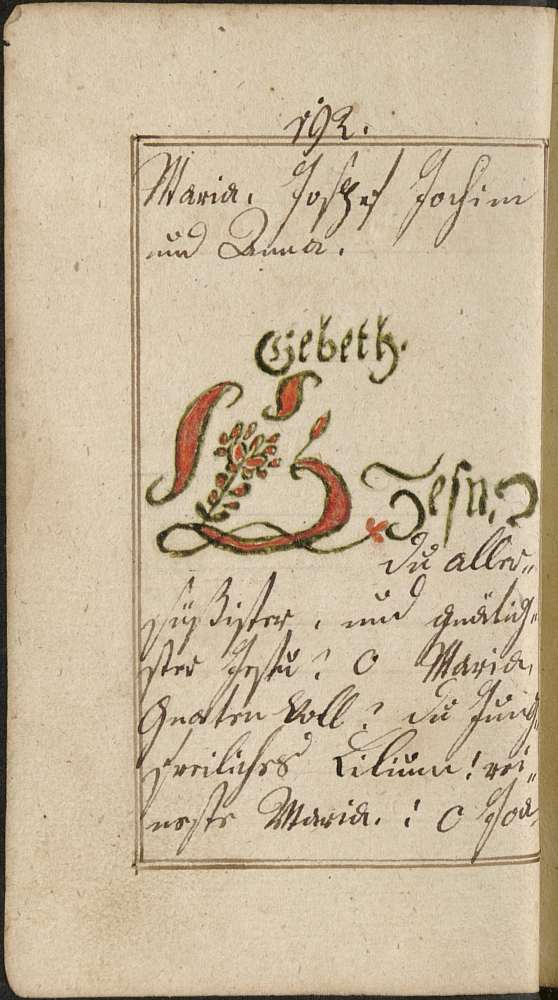 192.
Maria. Joseph Jochim
und Anna.
Gebeth.
O Jesu,
du aller„
süßister, und gnätig„
ster Jesu? O Maria,
Gnaten Voll? du Jung„
freiliches Lilium! rei„
neste Maria.! O Joa„